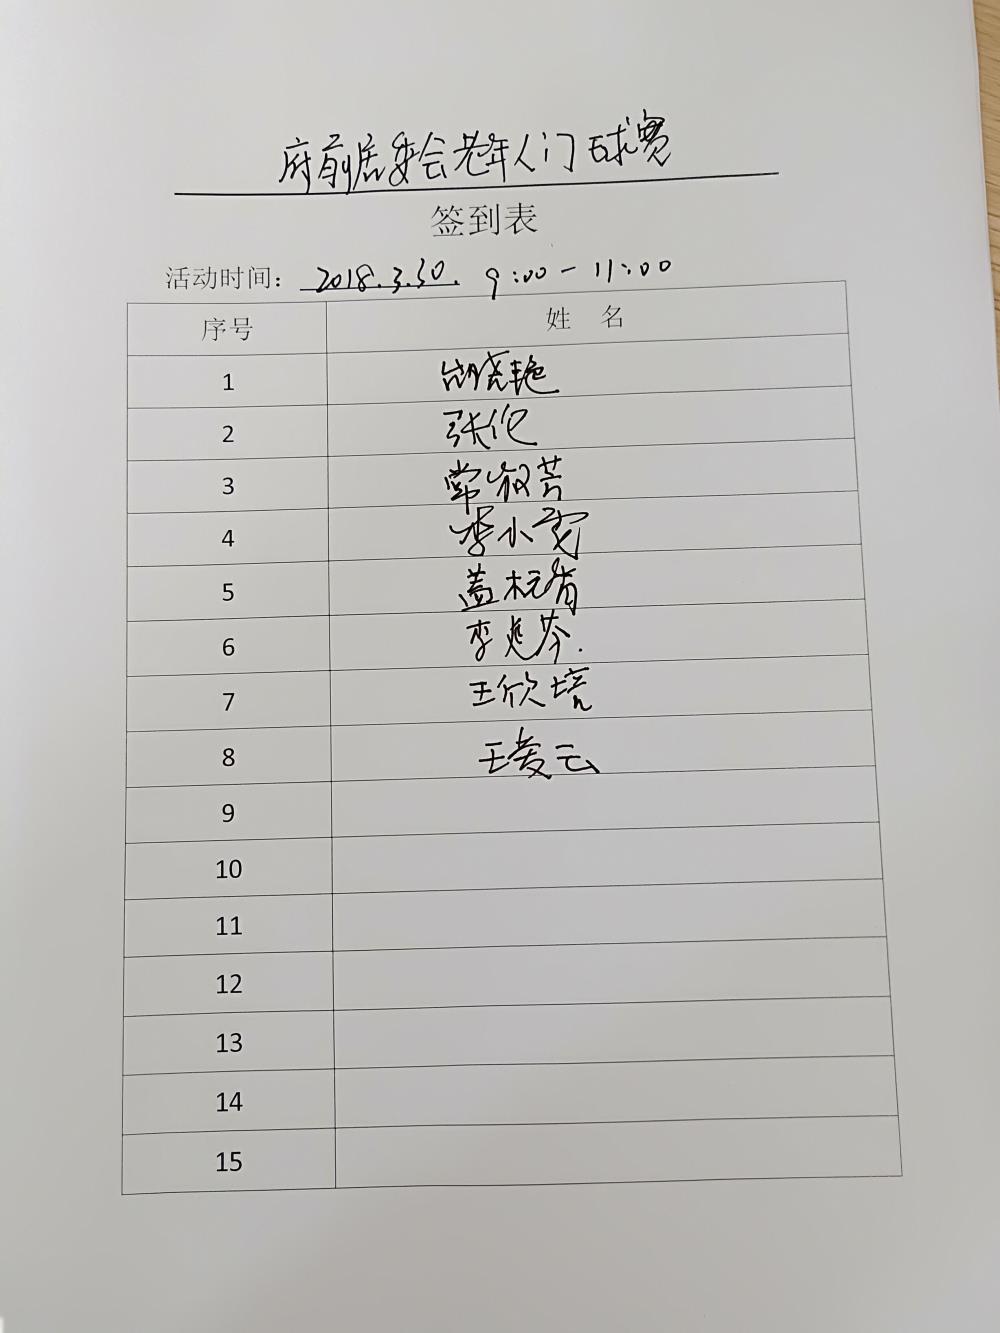 府前居委会老年人门球赛
签到表
活动时间: 2018.3.30. 9:00-11:00
序号 姓 名
1 晓艳
2 张伦
3 常淑芳
4 李小雯
5 盖标
6 李芬.
7 王欣培
8 王爱云
9
10
11
12
13
14
15